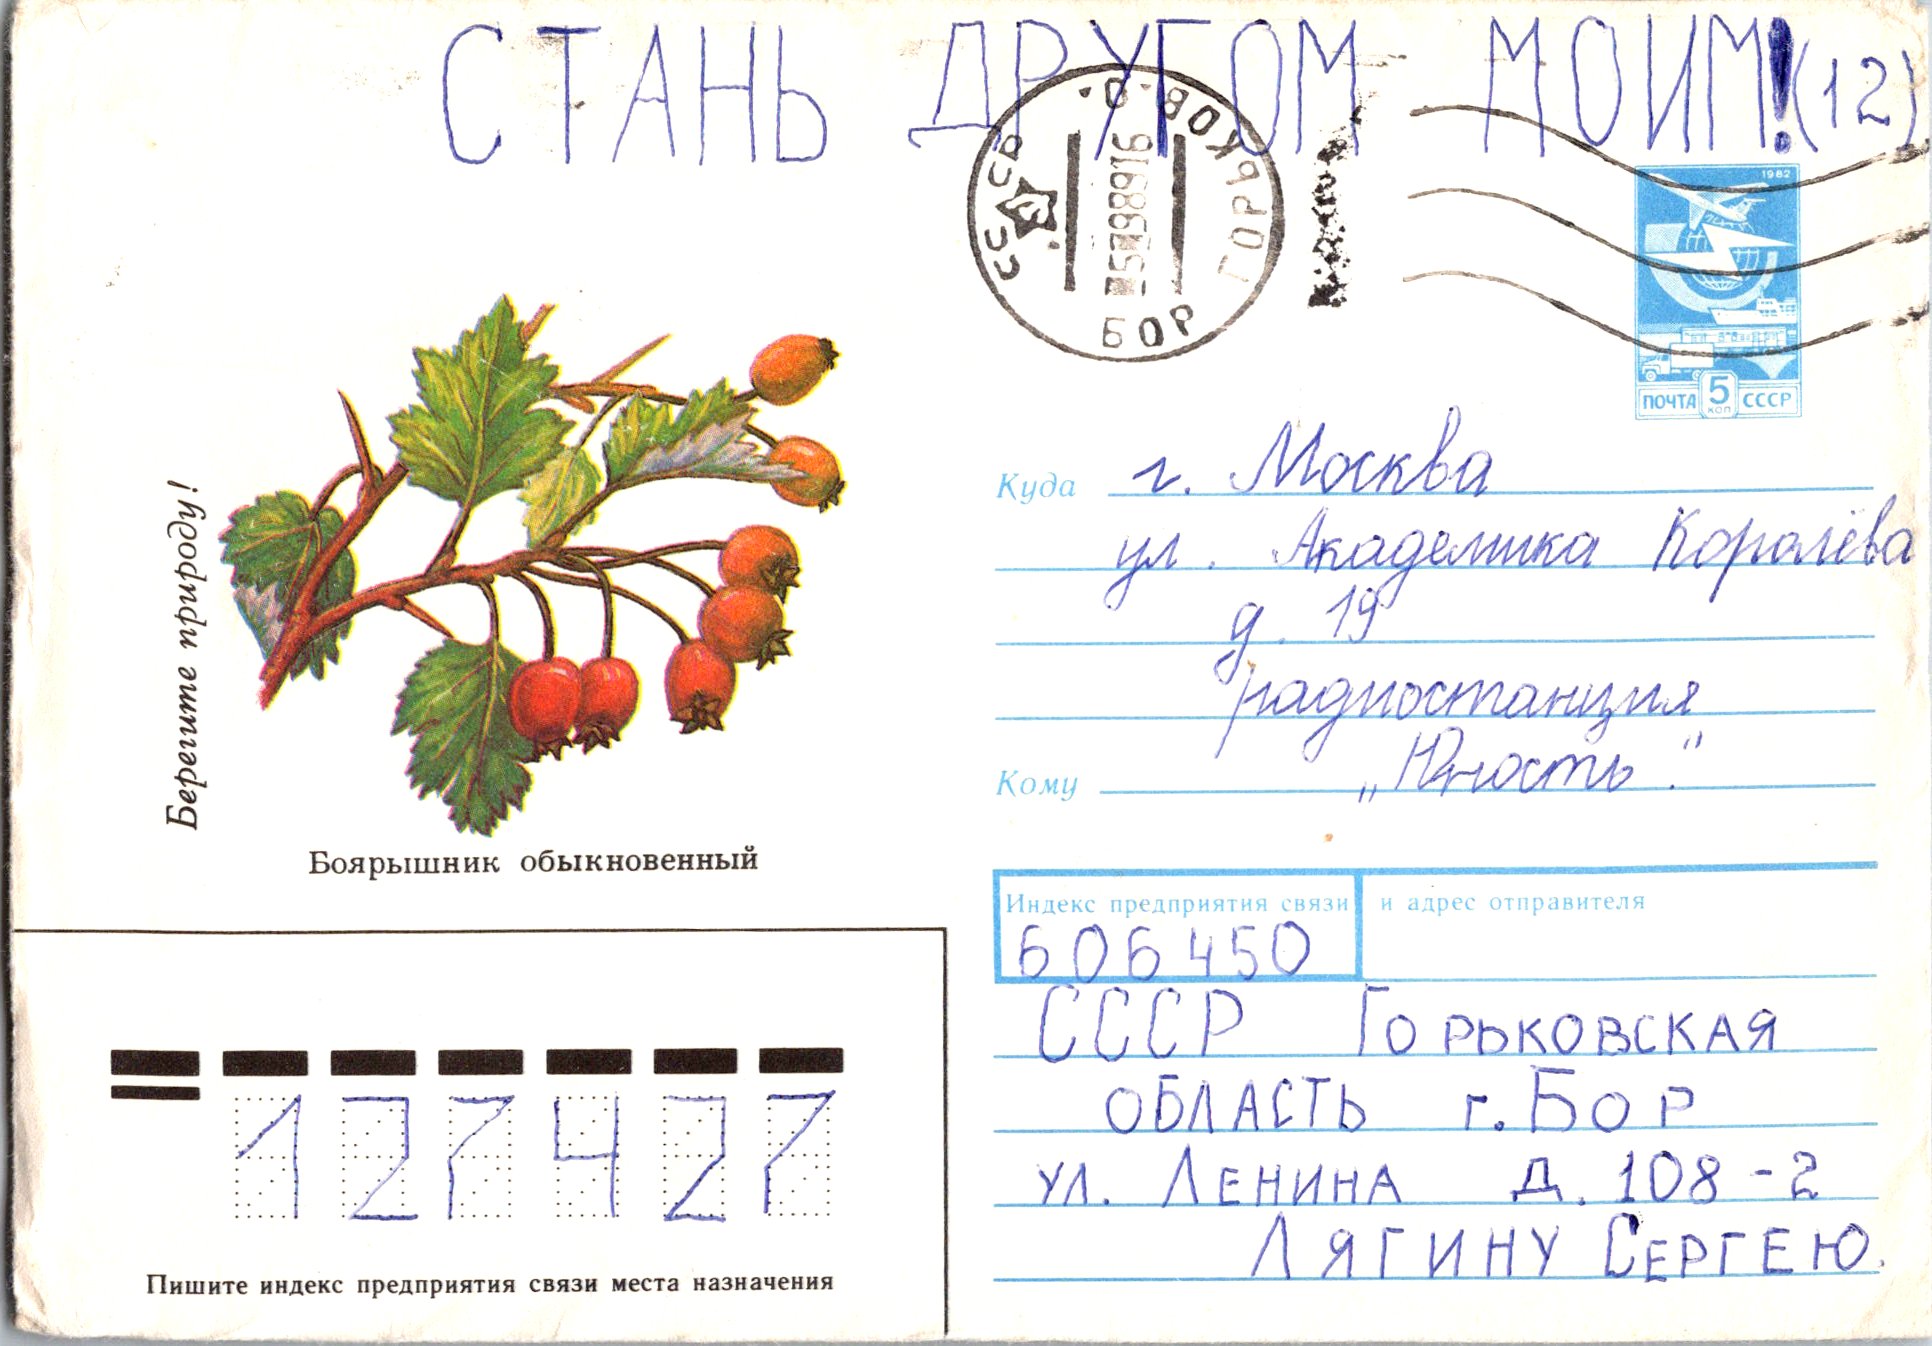 СТАНЬ ДРУГОМ МОИМ! (12)
СССР
ГОРЬКОВ. О.
БОР
1982
ПОЧТА 5 КОП СССР
Берегите природу!
Боярышник обыкновенный
Куда г. Москва
ул. Академика Королёва
д. 19
радиостанция
Кому „Юность".
Индекс предприятия связи и адрес отправителя
606450
СССР Горьковская
область г. Бор
ул. Ленина д. 108-2
Лягину Сергею.
127427
Пишите индекс предприятия связи места назначения